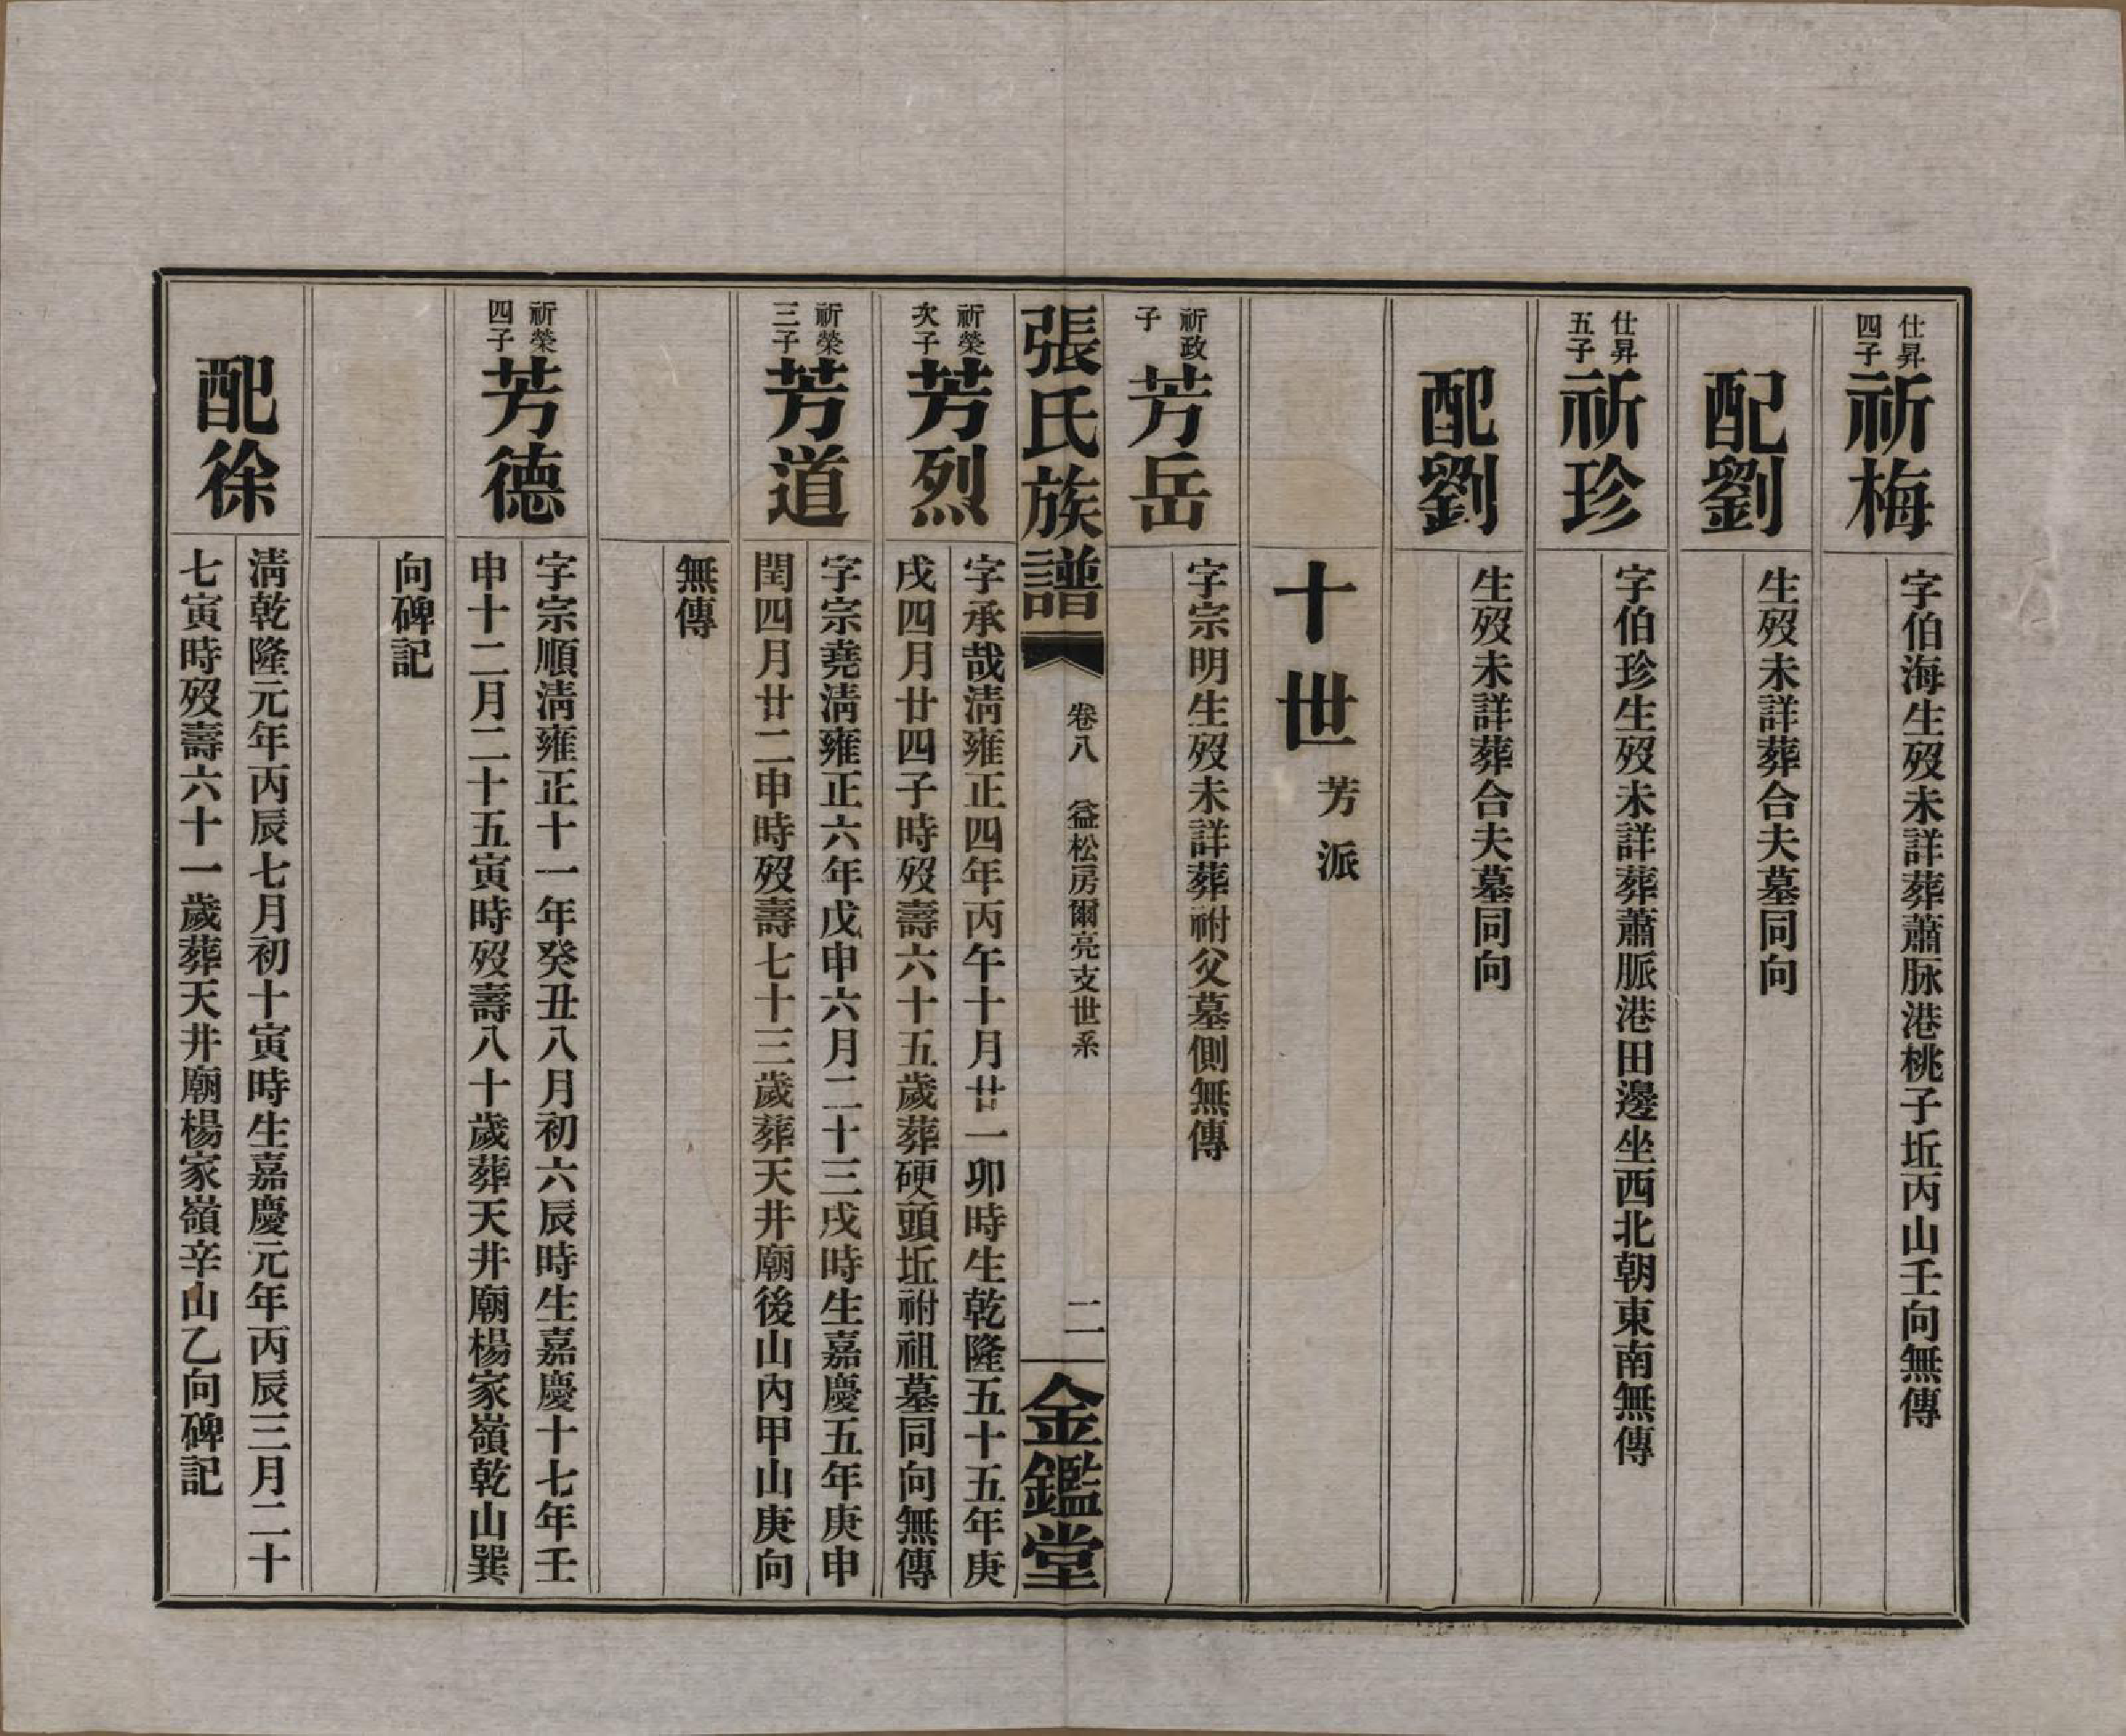 仕昇
四子
祈梅
字伯海生歿未詳葬蕭脉港桃子坵丙山壬向無傳
配劉
生歿未詳葬合夫墓同向
仕昇
五子
祈珍
字伯珍生歿未詳葬蕭脈港田邊坐西北朝東南無傳
配劉
生歿未詳葬合夫墓同向
十世
芳派
祈政
子
芳岳
字宗明生歿未詳葬祔父墓側無傳
張氏族譜
卷八 益松房爾亮支世系
二
金鑑堂
祈榮
次子
芳烈
字承哉淸雍正四年丙午十月廿一卯時生乾隆五十五年庚
戌四月廿四子時歿壽六十五歲葬硬頭坵祔祖墓同向無傳
祈榮
三子
芳道
字宗堯淸雍正六年戊申六月二十三戌時生嘉慶五年庚申
閏四月廿二申時歿壽七十三歲葬天井廟後山內甲山庚向
無傳
祈榮
四子
芳德
字宗順淸雍正十一年癸丑八月初六辰時生嘉慶十七年壬
申十二月二十五寅時歿壽八十歲葬天井廟楊家嶺乾山巽
向碑記
配徐
淸乾隆元年丙辰七月初十寅時生嘉慶元年丙辰三月二十
七寅時歿壽六十一歲葬天井廟楊家嶺辛山乙向碑記